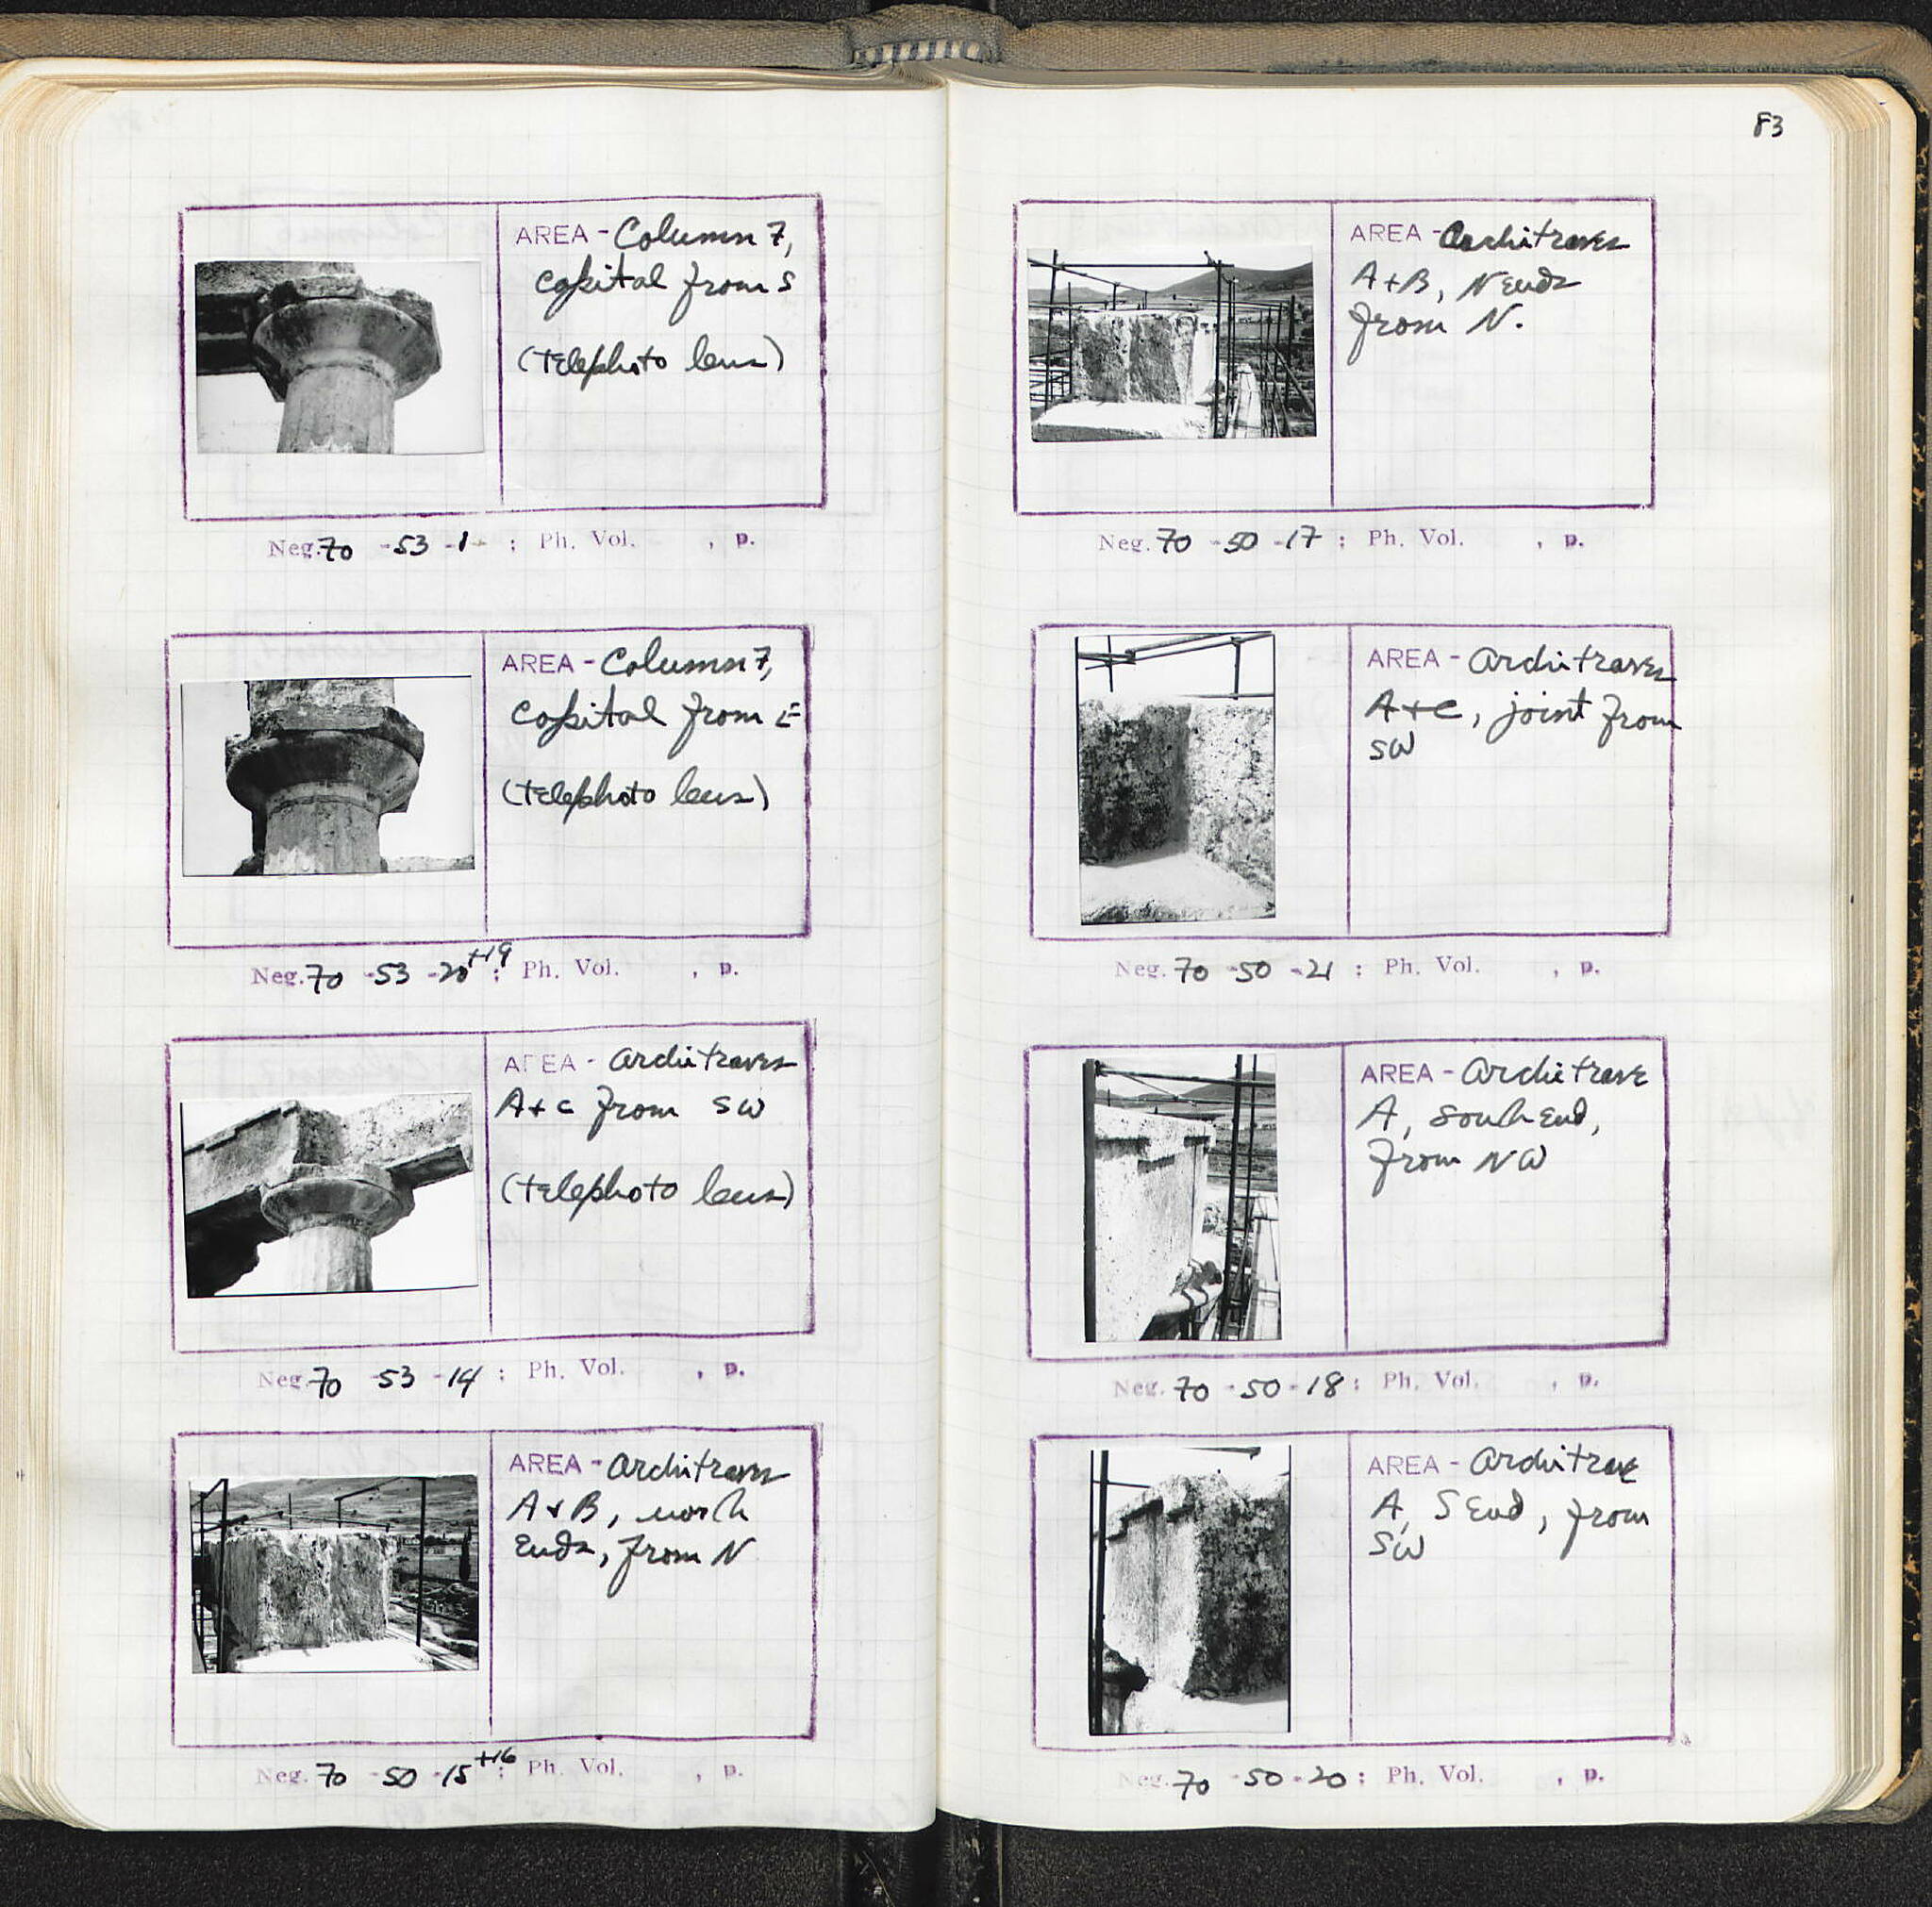 AREA - Column 7,
capital from S
(telephoto lens)
Neg. 70 - 53 - 1 - ; Ph. Vol. , p.
AREA - Column 7,
capital from E
(telephoto lens)
Neg. 70 - 53 - 20 +19 ; Ph. Vol. , p.
AREA - Architraves
A+C from SW
(telephoto lens)
Neg. 70 - 53 - 14 ; Ph. Vol. , p.
AREA - Architraves
A+B, north
Ends, from N
Neg. 70 - 50 - 15 +16 ; Ph. Vol. , p.
83
AREA - Architraves
A+B, N ends
from N.
Neg. 70 - 50 - 17 ; Ph. Vol. , p.
AREA - Architraves
A+C, joint from
SW
Neg. 70 - 50 - 21 ; Ph. Vol. , p.
AREA - Architrave
A, south End,
from NW
Neg. 70 - 50 - 18 ; Ph. Vol. , p.
AREA - Architrave
A, S End, from
SW
Neg. 70 - 50 - 20 ; Ph. Vol. , p.